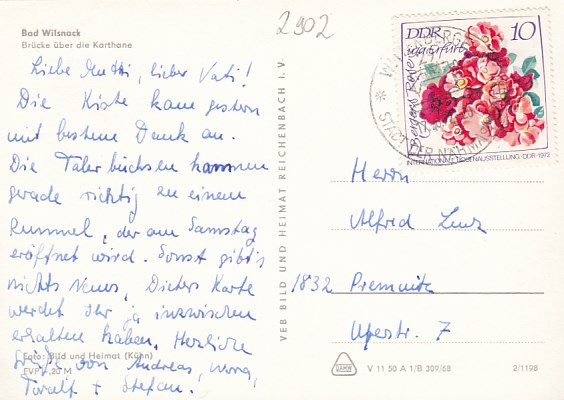 2902
Bad Wilsnack
Brücke über die Karthane
Liebe Mutti, lieber Vati!
Die Kiste kam gestern
mit bestem Dank an.
Die Talerbüchsen kommen
gerade richtig zu einem
Rummel, der am Samstag
eröffnet wird. Sonst gibt's
nichts Neues, Dieters Karte
werdet Ihr ja inzwischen
erhalten haben. Herzliche
Grüße von Andreas,
+ Stefan.
Foto: Bild und Heimat (Kühn)
EVP -,20 M
VEB BILD UND HEIMAT REICHENBACH I. V.
DDR 10
iga Erfurt
INTERNATIONALE ROSENAUSSTELLUNG · DDR · 1972
Herrn
Alfred
1832 Premnitz
Uferstr. 7
V 11 50 A 1/B 309/68
2/1198